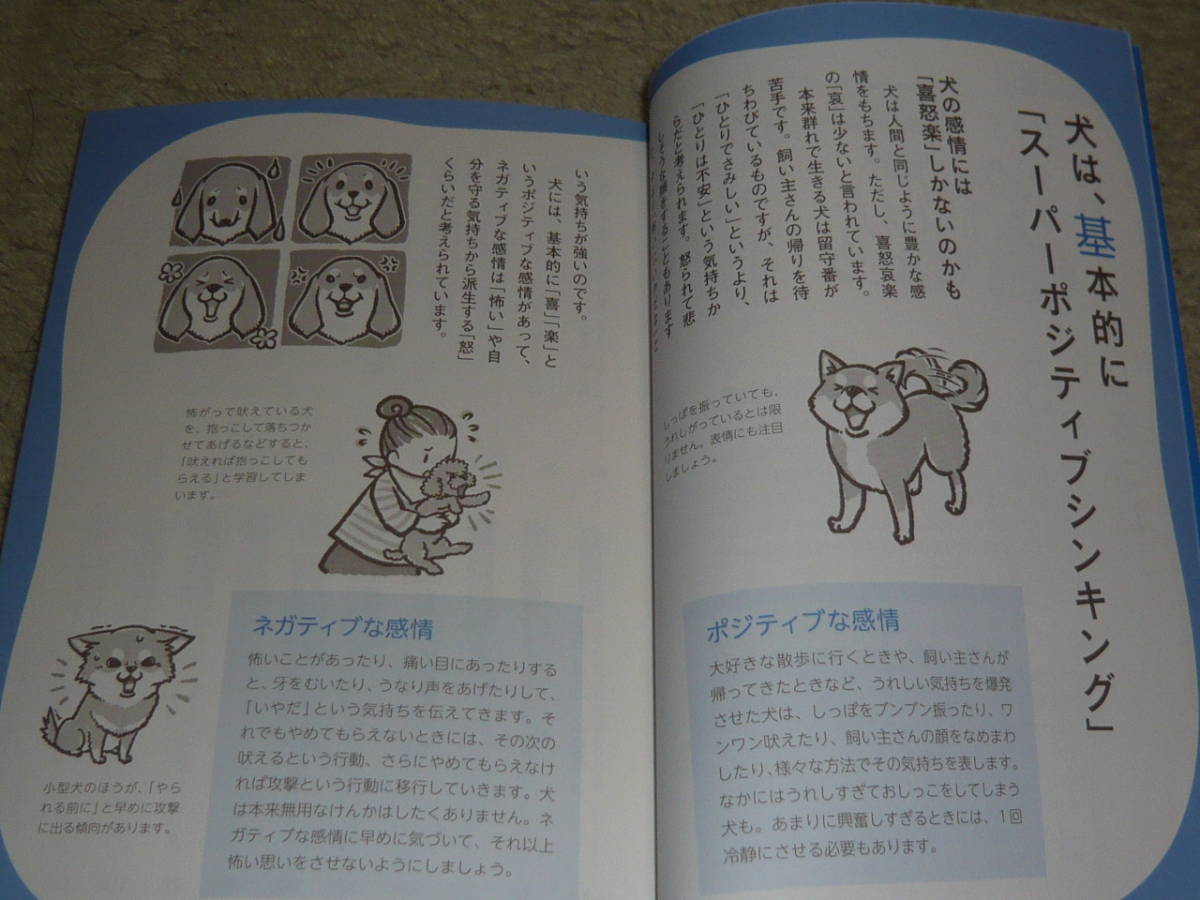 犬は、基本的に
「スーパーポジティブシンキング」
犬の感情には
「喜怒楽」しかないのかも
犬は人間と同じように豊かな感
情をもちます。ただし、喜怒哀楽
の「哀」は少ないと言われています。
本来群れで生きる犬は留守番が
苦手です。飼い主さんの帰りを待
ちわびているものですが、それは
「ひとりでさみしい」というより、
「ひとりは不安」という気持ちか
らだと考えられます。怒られて悲
しそうな顔をすることもあります
しっぽを振っていても、
うれしがっているとは限
りません。表情にも注目
しましょう。
ポジティブな感情
大好きな散歩に行くときや、飼い主さんが
帰ってきたときなど、うれしい気持ちを爆発
させた犬は、しっぽをブンブン振ったり、ワ
ンワン吠えたり、飼い主さんの顔をなめまわ
したり、様々な方法でその気持ちを表します。
なかにはうれしすぎておしっこをしてしまう
犬も。あまりに興奮しすぎるときには、1回
冷静にさせる必要もあります。
いう気持ちが強いのです。
犬には、基本的に「喜」「楽」と
いうポジティブな感情があって、
ネガティブな感情は「怖い」や自
分を守る気持ちから派生する「怒」
くらいだと考えられています。
怖がって吠えている犬
を、抱っこして落ちつか
せてあげるなどすると、
「吠えれば抱っこしても
らえる」と学習してしま
います。
ネガティブな感情
怖いことがあったり、痛い目にあったりする
と、牙をむいたり、うなり声をあげたりして、
「いやだ」という気持ちを伝えてきます。そ
れでもやめてもらえないときには、その次の
吠えるという行動、さらにやめてもらえなけ
れば攻撃という行動に移行していきます。犬
は本来無用なけんかはしたくありません。ネ
ガティブな感情に早めに気づいて、それ以上
怖い思いをさせないようにしましょう。
小型犬のほうが、「やら
れる前に」と早めに攻撃
に出る傾向があります。